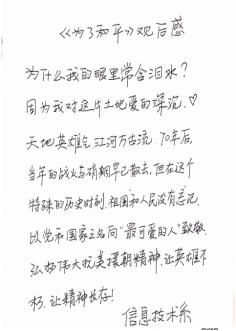 《为了和平》观后感
为什么我的眼里常含泪水？
因为我对这片土地爱的深沉。♡
天地英雄气，江河万古流。70年后，
当年的战火与硝烟早已散去，但在这个
特殊的历史时刻，祖国和人民没有忘记，
以党和国家之名向“最可爱的人”致敬，
弘扬伟大抗美援朝精神，让英雄不
朽，让精神长存！
信息技术系